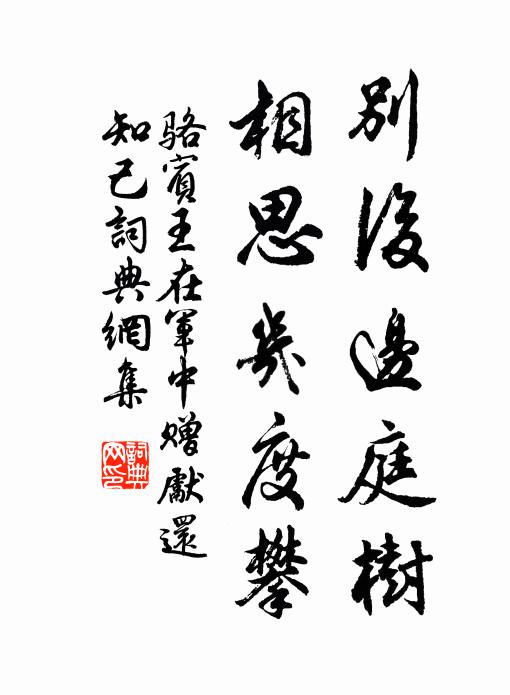 別後邊庭樹
相思幾度攀
駱賓王在軍中贈獻還
知己詞典網集
詞典
网印